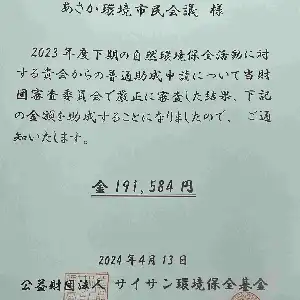 あさか環境市民会議 様
2023年度下期の自然環境保全活動に対
する貴会からの普通助成申請について当財
団審査委員会で厳正に審査した結果、下記
の金額を助成することになりましたので、ご通
知いたします。
金 191,584 円
2024年4月13日
公益財団法人 サイサン環境保全基金